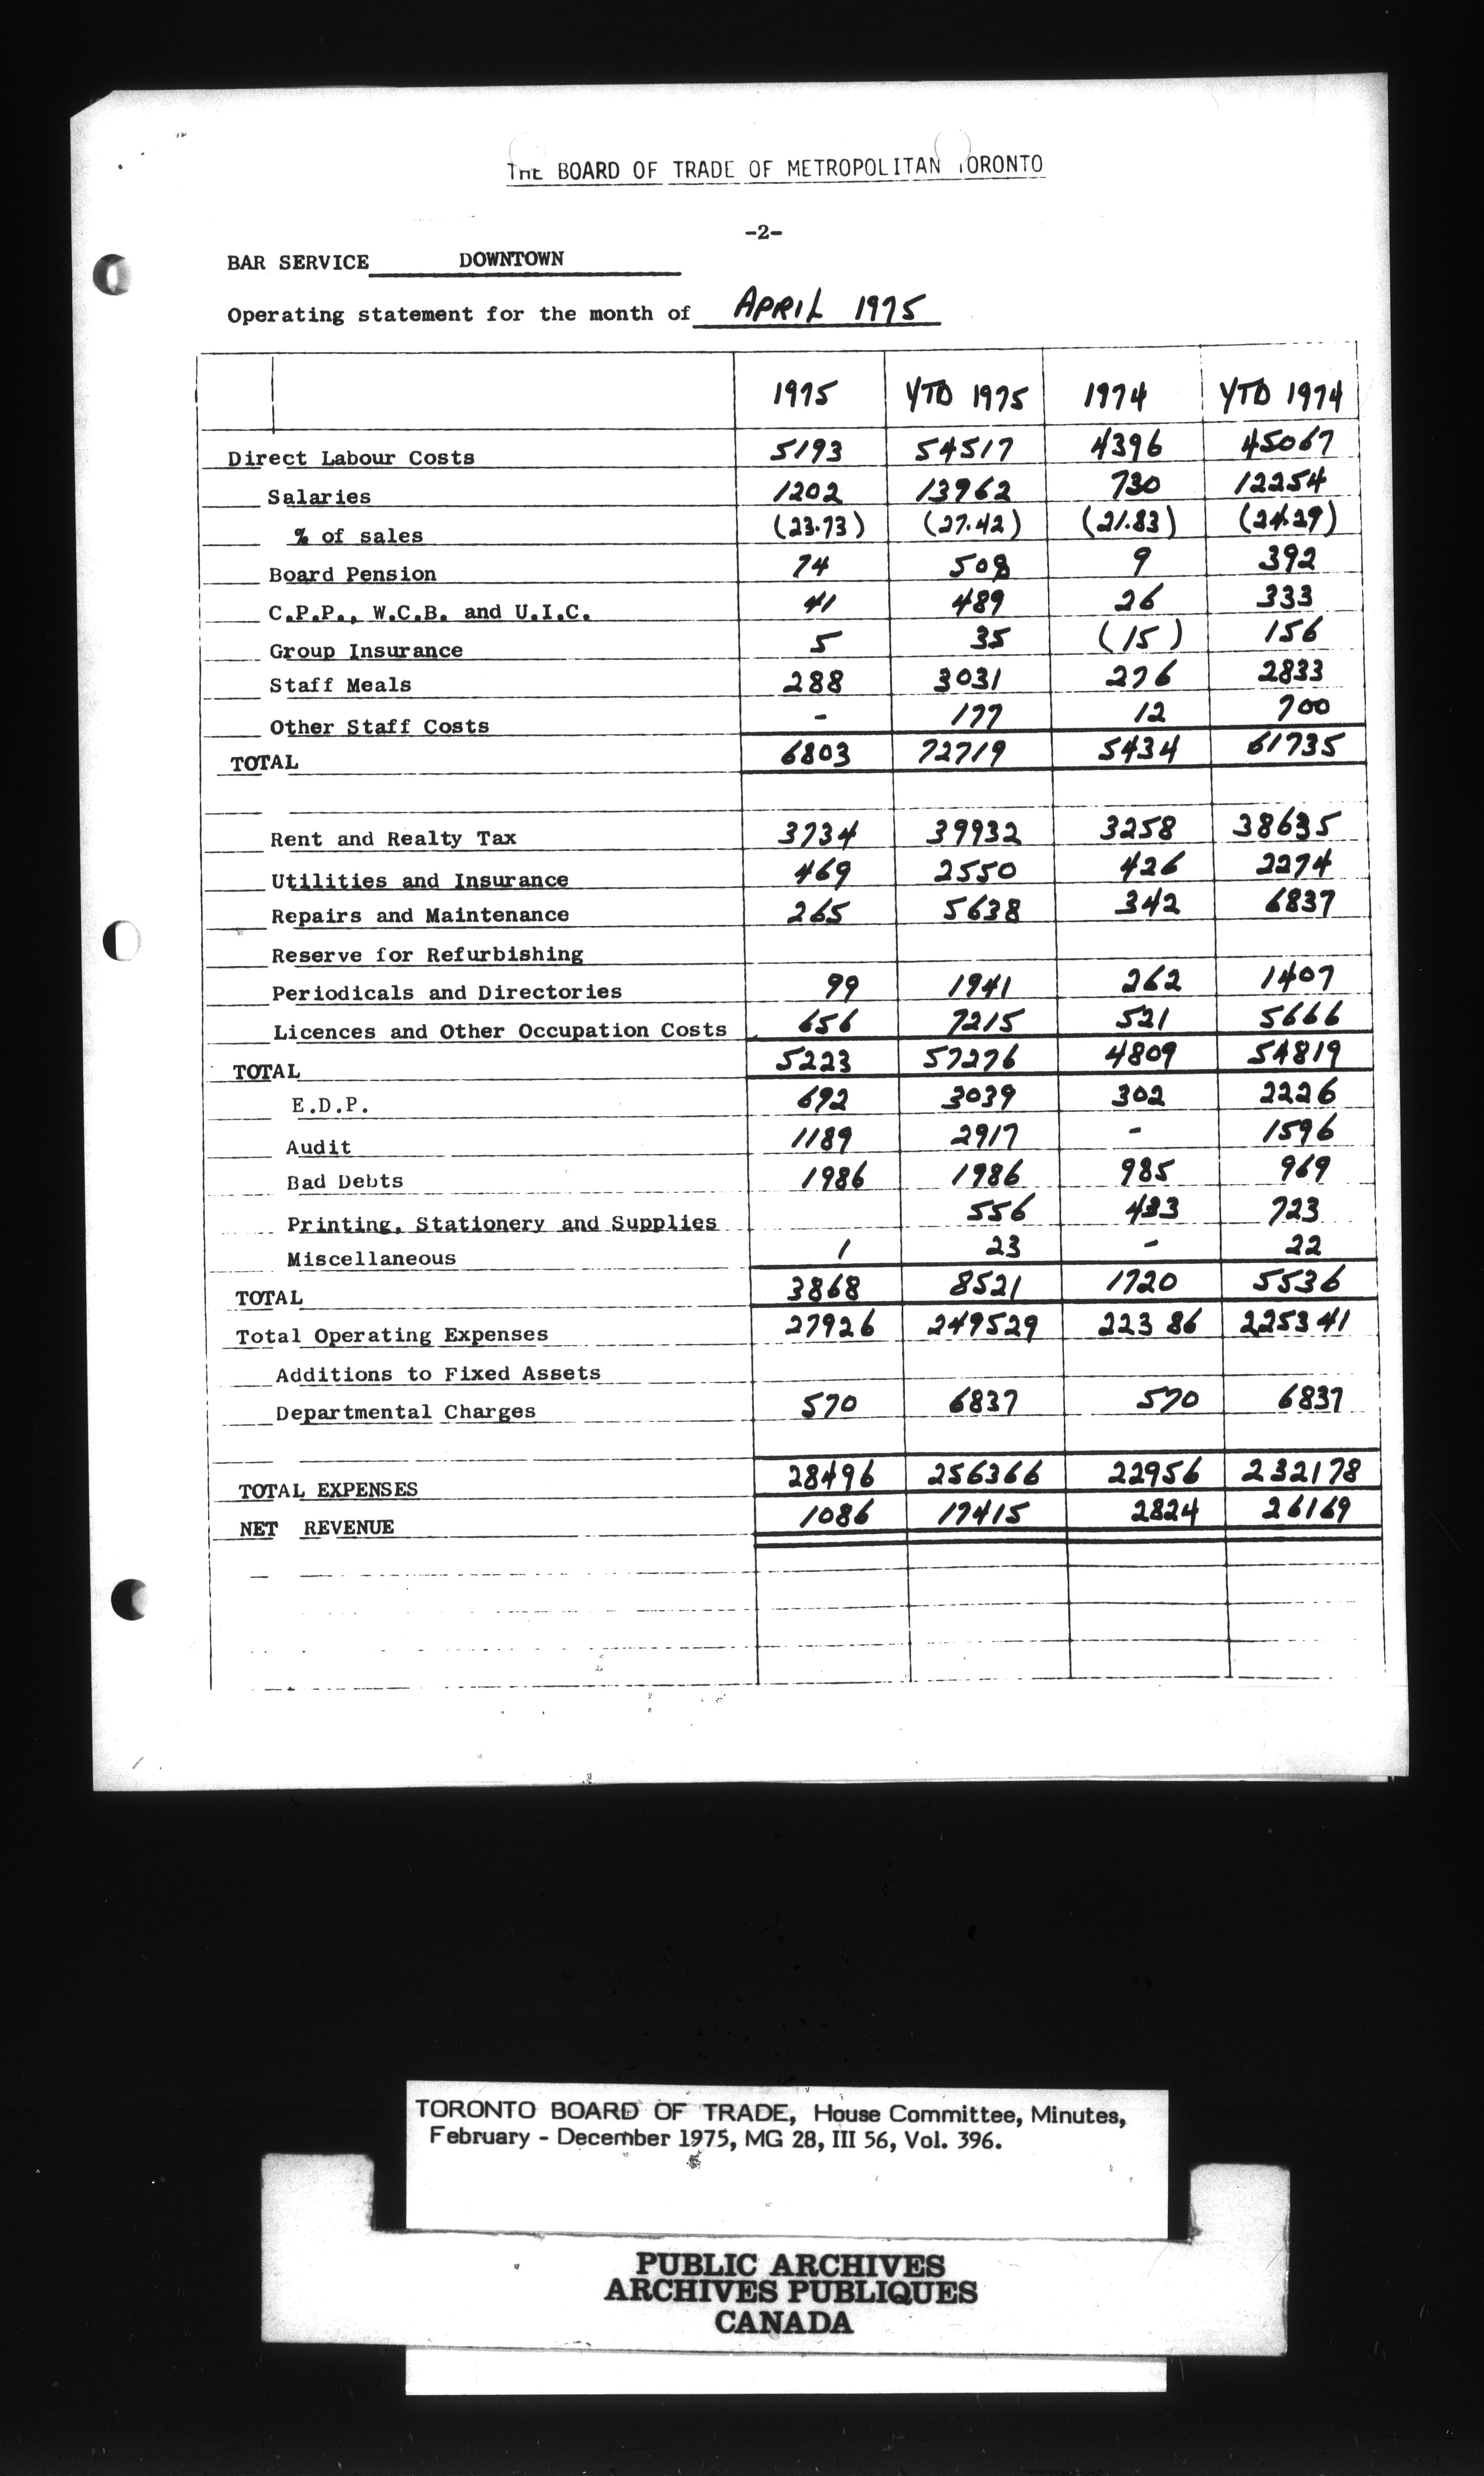 THE BOARD OF TRADE OF METROPOLITAN TORONTO
-2-
BAR SERVICE DOWNTOWN
Operating statement for the month of APRIL 1975
1975 YTD 1975 1974 YTD 1974
Direct Labour Costs 5193 54517 4396 45067
Salaries 1202 13962 730 12254
% of sales (23.73) (27.42) (21.83) (24.29)
Board Pension 74 508 9 392
C.P.P., W.C.B. and U.I.C. 41 489 26 333
Group Insurance 5 35 (15) 156
Staff Meals 288 3031 276 2833
Other Staff Costs - 177 12 700
TOTAL 6803 72719 5434 61735
Rent and Realty Tax 3734 39932 3258 38635
Utilities and Insurance 469 2550 426 2274
Repairs and Maintenance 265 5638 342 6837
Reserve for Refurbishing
Periodicals and Directories 99 1941 262 1407
Licences and Other Occupation Costs 656 7215 521 5666
TOTAL 5223 57276 4809 54819
E.D.P. 692 3039 302 2226
Audit 1189 2917 - 1596
Bad Debts 1986 1986 985 969
Printing, Stationery and Supplies 556 433 723
Miscellaneous 1 23 - 22
TOTAL 3868 8521 1720 5536
Total Operating Expenses 27926 249529 22386 225341
Additions to Fixed Assets
Departmental Charges 570 6837 570 6837
TOTAL EXPENSES 28496 256366 22956 232178
NET REVENUE 1086 17415 2824 26169
TORONTO BOARD OF TRADE, House Committee, Minutes,
February - December 1975, MG 28, III 56, Vol. 396.
PUBLIC ARCHIVES
ARCHIVES PUBLIQUES
CANADA